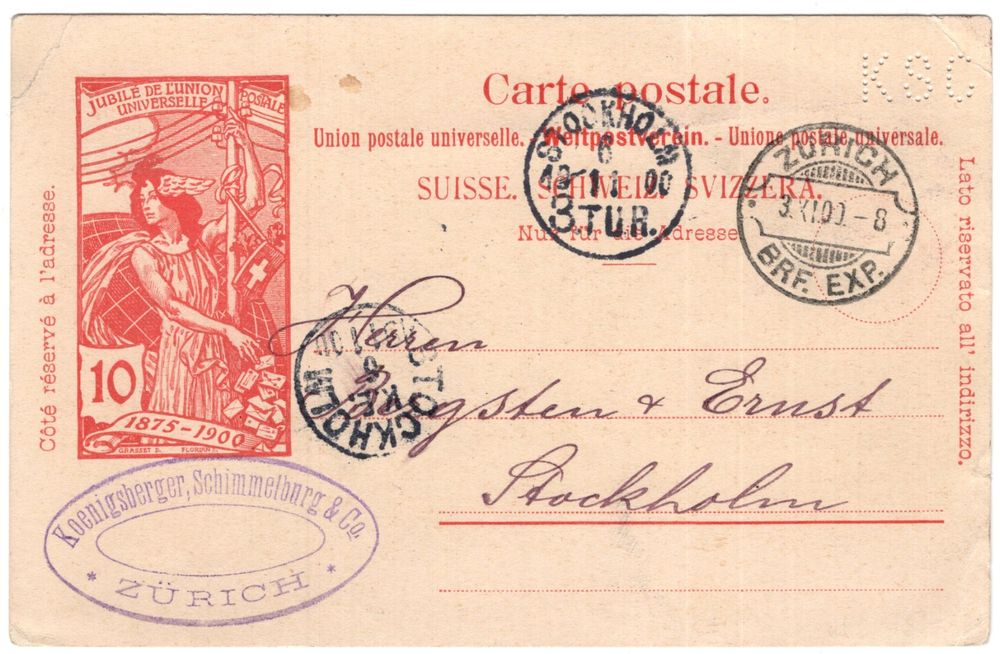 KSC
JUBILÉ DE L'UNION
UNIVERSELLE POSTALE
10
1875-1900
GRASSET D. FLORIAN
Carte postale.
Union postale universelle. - Weltpostverein. - Unione postale universale.
SUISSE. SCHWEIZ. SVIZZERA.
Nur für die Adresse
Côté réservé à l'adresse.
Lato riservato all' indirizzo.
STOCKHOLM
6
11 00
3.TUR.
ZÜRICH
3.XI.00.-8
BRF. EXP.
STOCKHOLM
6
Herren
& Ernst
Stockholm
Koenigsberger, Schimmelburg & Co.
* ZÜRICH *